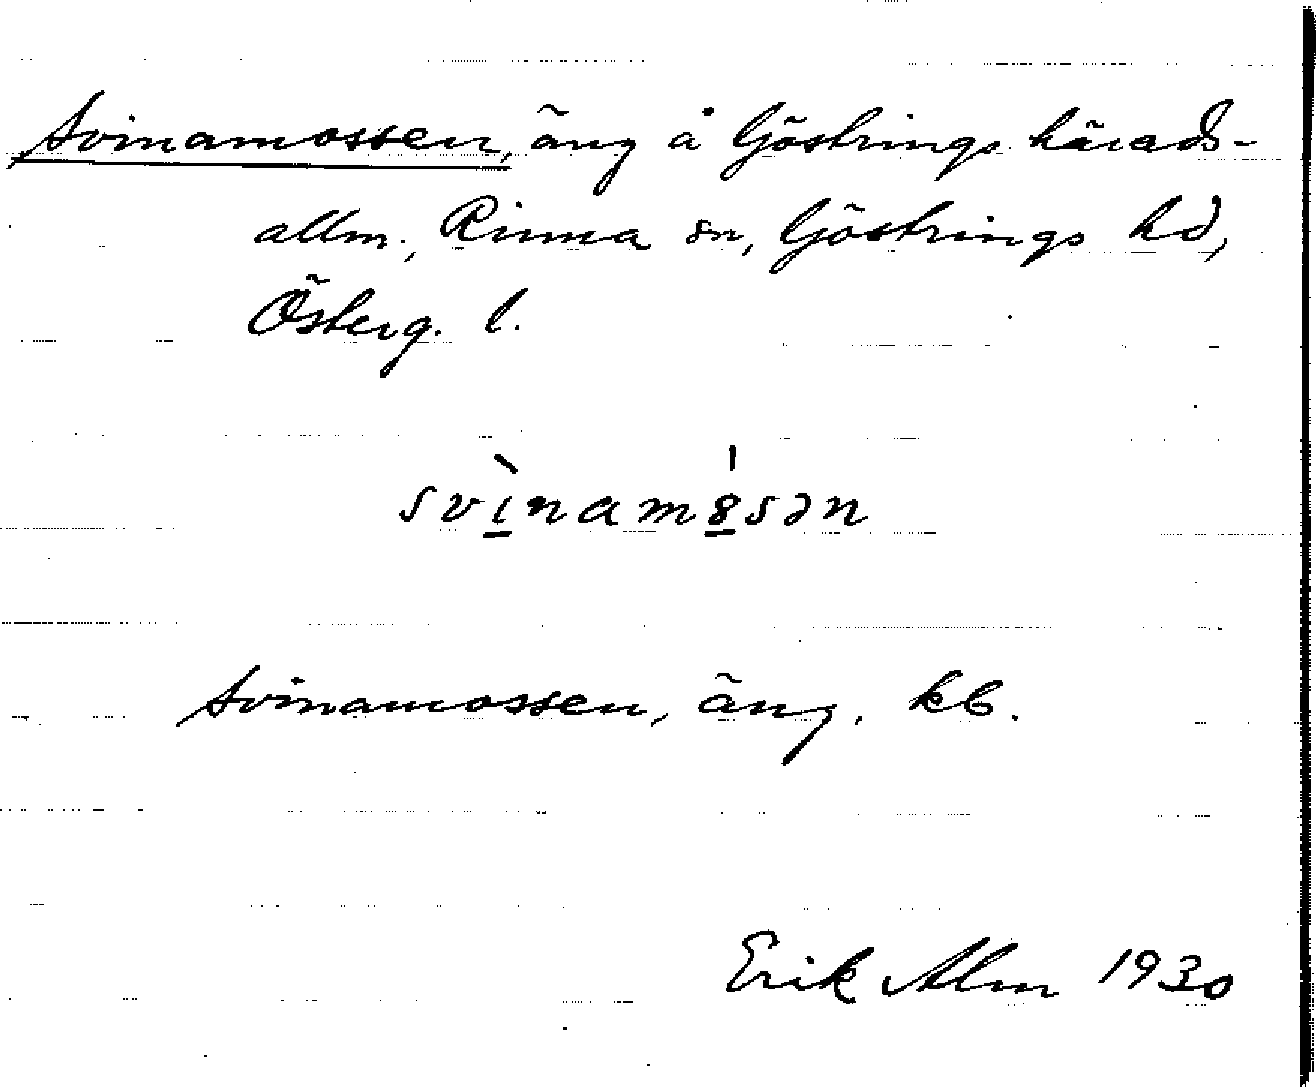 Svinamossen, äng å Göstrings härads-
allm., Rinna sn, Göstrings hd,
Österg. l.
svìnamo̍sən
Svinamossen, äng. kb.
Erik Alm 1930